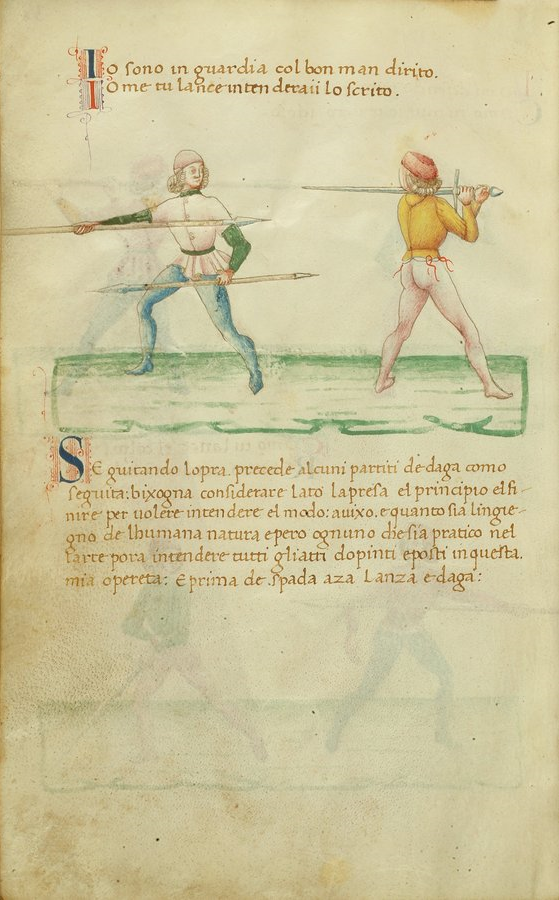 Io sono in guardia col bon man dirito.
Io me tu lance inten deraii lo scrito.
SE guitando lopra. precede alcuni partiti de daga como
seguita: bixogna considerare lato lapresa el principio elfi-
nire per uolere intendere el modo: auixo. e quanto sia lingie-
gno de lhumana natura epero ognuno che sia pratico nel
larte pora intendere tutti gliatti dopinti eposti in questa.
mia opereta: E prima de spada aza Lanza e daga: